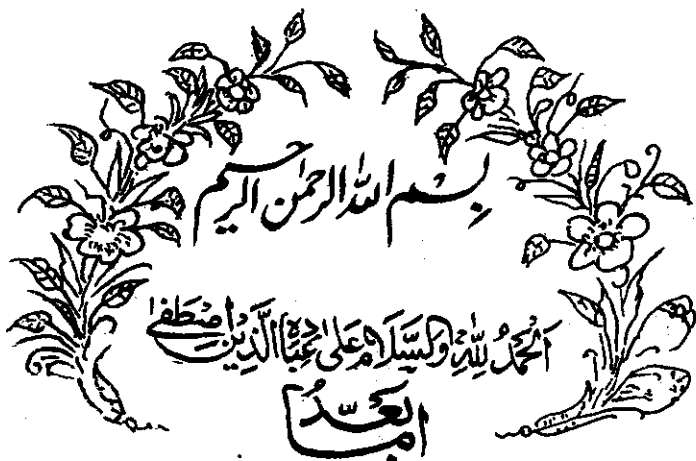 بسم الله الرحمن الرحيم
الحمد لله والسلام على عباده الذين اصطفى
اما بعد